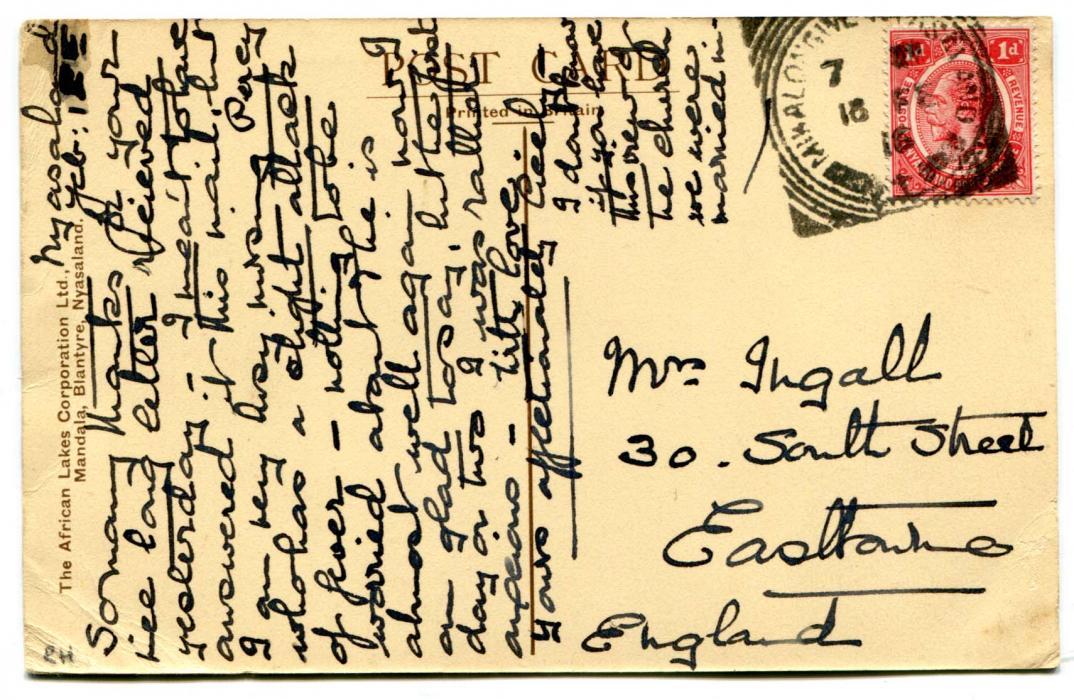 POST CARD
Printed in Britain
The African Lakes Corporation Ltd.,
Mandala, Blantyre, Nyasaland.
Nyasaland
Feb:
So many thanks for your
nice long letter received
yesterday – I meant to have
answered it this mail, but
I am very busy nursing Percy
who has a slight attack
of fever – nothing to be
worried about & he is
almost well again now I
am glad to say, but the first
day or two I was rather
anxious – With love.
Yours affectionately Cicely –
I don't know
if you have
this view of
the church
we were
married in –
Mrs Ingall
30. South Street
Eastbourne
England
7
18
1d
1d
POSTAGE
REVENUE
NYASALAND PROTECTORATE